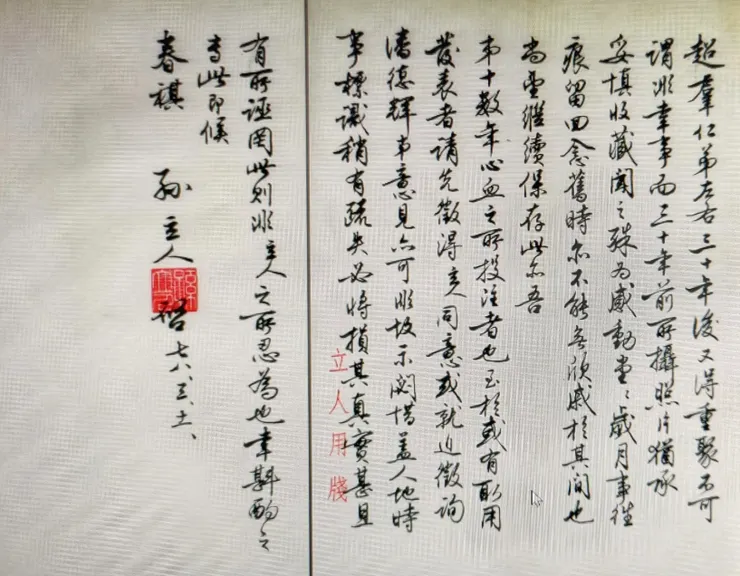 超羣仁弟左右三十年後又得重聚不可
謂非幸事而三十年前所攝照片猶承
妥慎收藏聞之殊為感動堂〻歲月事往
痕留回念舊時亦不能無欣戚於其間也
尚望繼續保存此亦吾
弟十數年心血之所投注者也至於或有取用
發表者請先徵得立人同意或就近徵詢
潘德輝弟意見亦可非故示閟惜蓋人地時
事標識稍有疏失必將損其真實甚且
立人用牋
有所誣罔此則非立人之所忍為也幸斟酌之
專此即候
春祺
孫立人啓七八、三、十一、